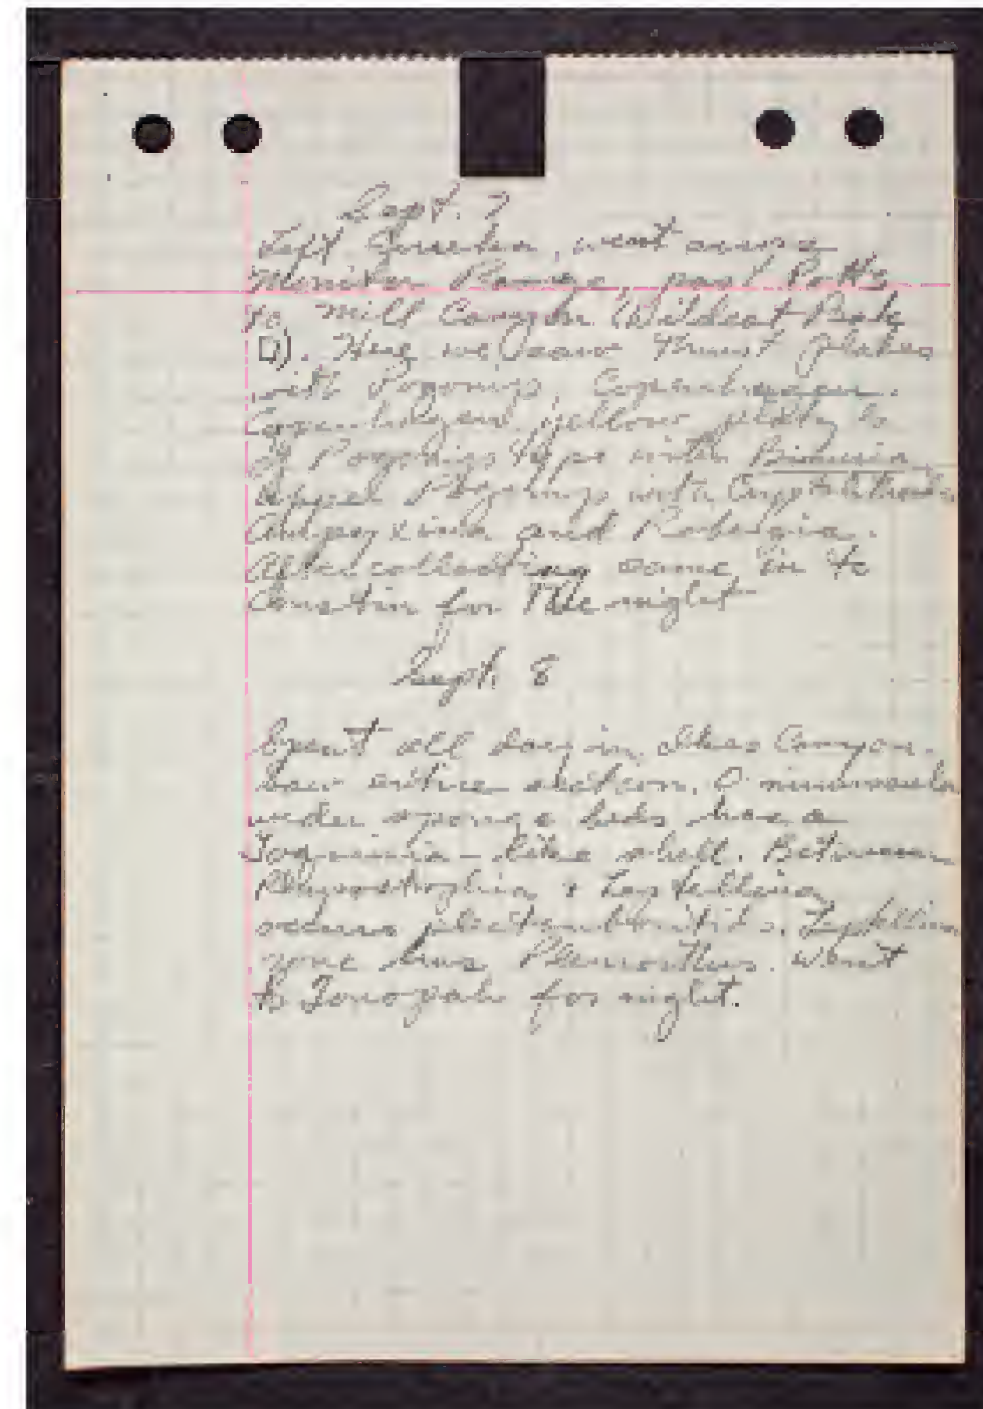 Sept. 7
Left Eureka, went across
Monitor Range, past Potts
to Mill Canyon (Wildcat Peak
Q). Here we saw thrust plates
with Pogonip, Copenhagen.
Copenhagen yellow platy ls
Pogonip type with
Upper Pogonip with
and
After collecting came in to
Austin for the night
Sept. 8
Spent all day in Ikes Canyon.
Saw entire section. O. minuscula
under sponge beds has a
Toquimia-like shell. Between
+ Leptellina
occurs plectambonitids. Leptellina
zone has Plaesiomys. Went
to Tonopah for night.